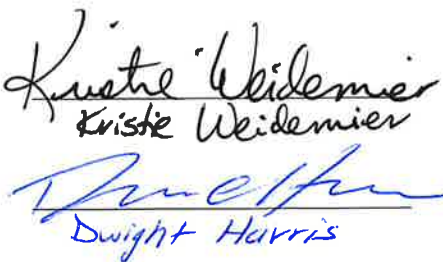 Kristie Weidemier
Kristie Weidemier
Dwight Harris